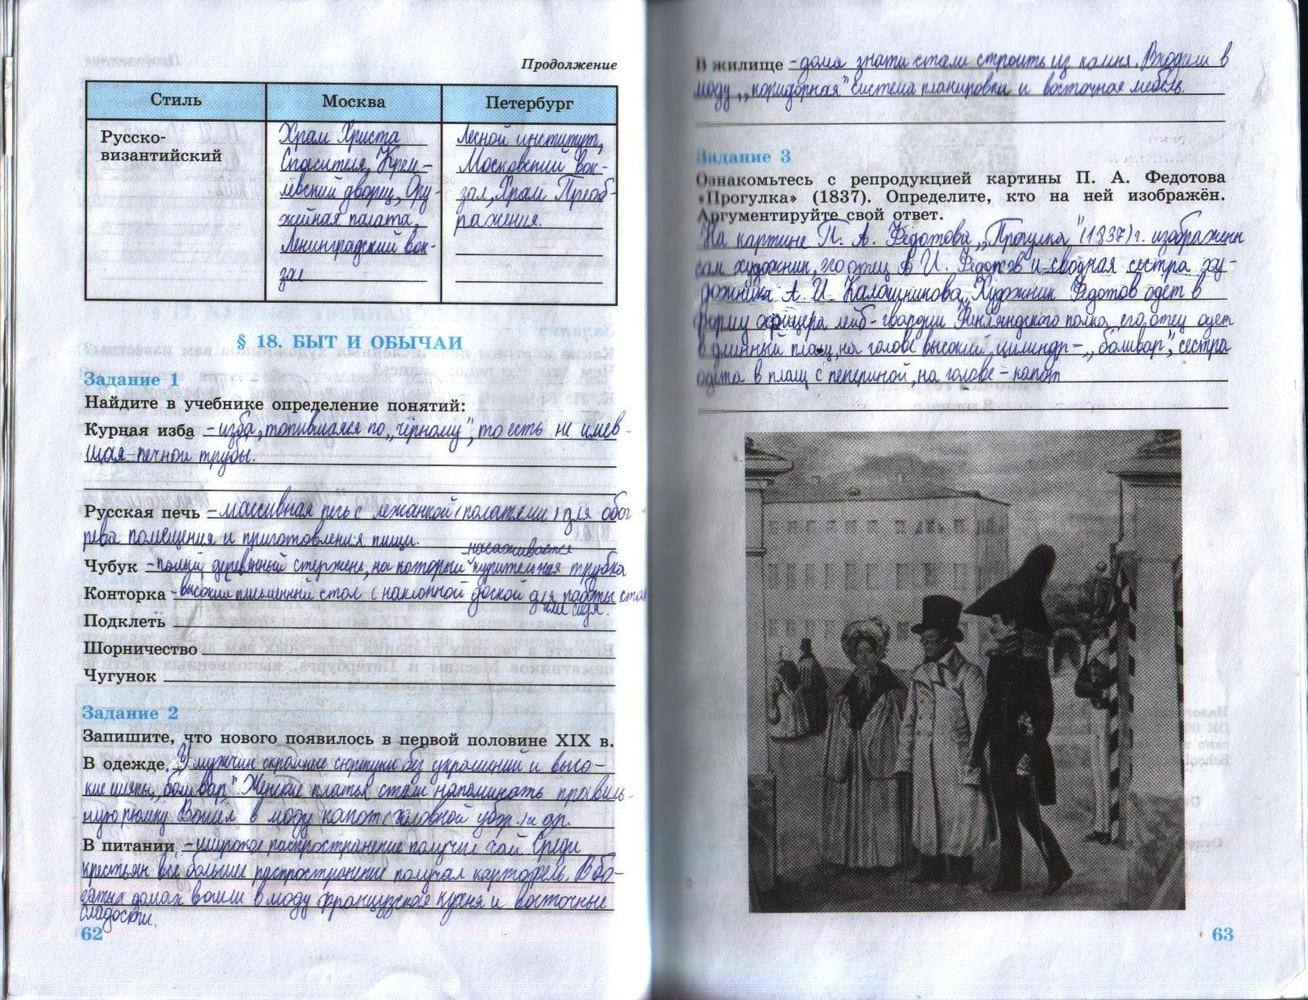 Продолжение
Стиль
Москва
Петербург
Русско-
византийский
Храм Христа
Спасителя, Крем-
левский дворец, Ору-
жейная палата,
Ленинградский вок-
зал
Лесной институт,
Московский вок-
зал, Храм Преоб-
ражения.
§ 18. БЫТ И ОБЫЧАИ
Задание 1
Найдите в учебнике определение понятий:
Курная изба - изба, топившаяся по „чёрному", то есть не имев-
шая печной трубы.
Русская печь - массивная печь с лежанкой (полатями) для обог
рева помещения и приготовления пищи.
насаживается
Чубук - полый деревянный стержень, на который курительная трубка
Конторка - высокий письменный стол с наклонной доской для работы стоя
или сидя.
Подклеть
Шорничество
Чугунок
Задание 2
Запишите, что нового появилось в первой половине XIX в.
В одежде У мужчин скромные сюртуки без украшений и высо-
кие шляпы „боливар". Женские платья стали напоминать правиль-
ную рюмку. Вошёл в моду капот (головной убор) и др.
В питании - широкое распространение получил чай. Среди
крестьян всё большее распространение получал картофель. В бо-
гатых домах вошли в моду французская кухня и восточные
сладости.
62
В жилище - дома знати стали строить из камня. Входили в
моду „коридорная" система планировки и восточная мебель.
Задание 3
Ознакомьтесь с репродукцией картины П. А. Федотова
«Прогулка» (1837). Определите, кто на ней изображён.
Аргументируйте свой ответ.
На картине П. А. Федотова „Прогулка" (1837) г. изображен
сам художник, его отец А. И. Федотов и сводная сестра ху-
дожника А. И. Калашникова. Художник Федотов одет в
форму офицера лейб-гвардии Финляндского полка, его отец одет
в длинный плащ, на голове высокий цилиндр - „боливар", сестра
одета в плащ с пелериной, на голове - капот
63